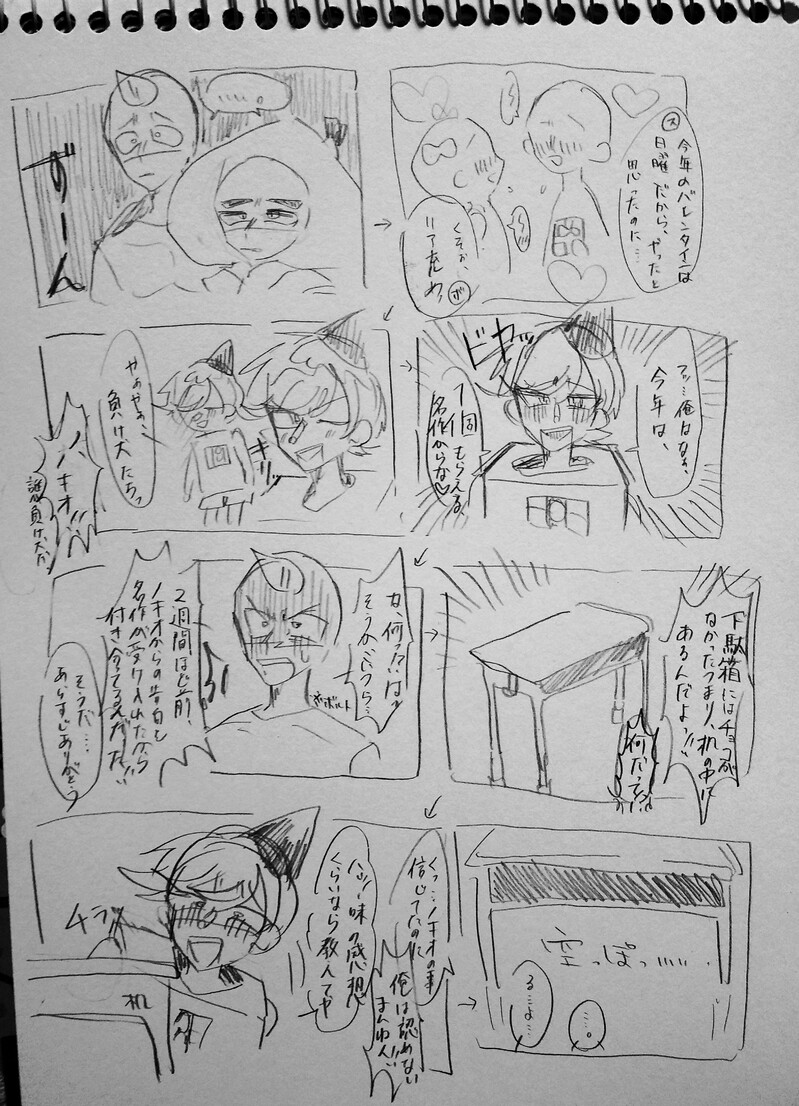 ……。
ずーん
今年のバレンタインは
日曜だから、やったと
思ったのに…。
くそぉ、
リア充めっ
やぁやぁ、
負け犬たちっ
キリッ
ノ、ノキオ!!
誰が負け犬だ
フッ…俺はなぁ、
今年は、
ドヤッ
1個もらえる、
名作からな♡
な、何っ!?
そうか、こいつら…
ボルト
2週間ほど前、
ノキオからの告白を
名作が受け入れたから
付き合ってるんだった!!
そうだ…。
あらすじありがとう
下駄箱にはチョコが
なかったつまり、机の中に
あるんだよっ!!
何だって!?
くっ…ノキオの事
信じてたのに
俺は認めない
ハッ…味の感想
くらいなら教えてや
チラ
机
空っぽっ……
る…よ…
…。